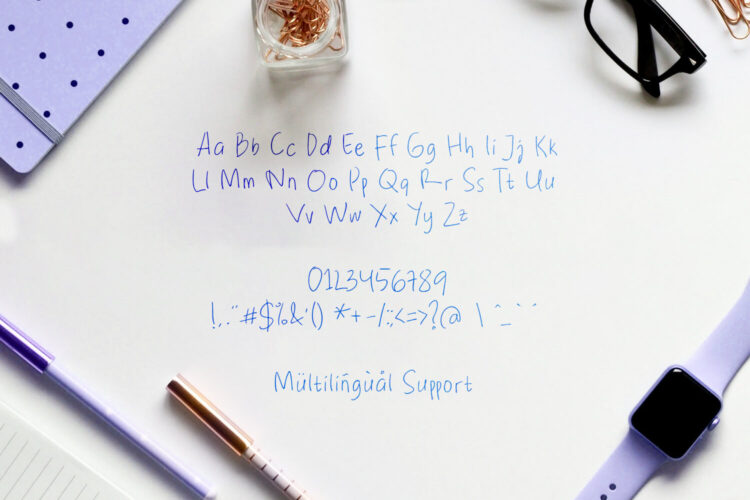 Aa Bb Cc Dd Ee Ff Gg Hh Ii Jj Kk
Ll Mm Nn Oo Pp Qq Rr Ss Tt Uu
Vv Ww Xx Yy Zz
0123456789
!,."#$%&'() *+-/:;<=>?@ \ ^_¨´`
Mültiliñgùål Support